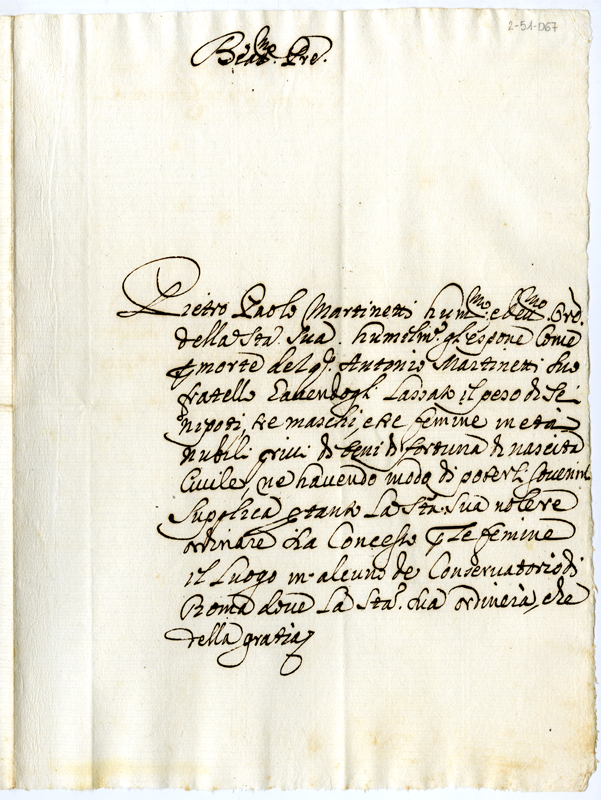 2-51-067
Beat.mo Pre.
Pietro Paolo Martinetti hum.mo e dev.mo Orō.
della Stà. Sua. humilm.e gl'espone come
p morte del q. Antonio Martinetti suo
fratello havendogli lassato il peso di sei
nipoti, tre maschi, e tre femine in età
nubili privi di beni di fortuna di nascita
Civile, ne havendo modo di poterli sovenire
Supplica ptanto La Stà. Sua volere
ordinare sia Concesso p le femine
il Luogo in alcuno de Conservatorio di
Roma dove La Stà. Sua ordinerà, che
della gratia